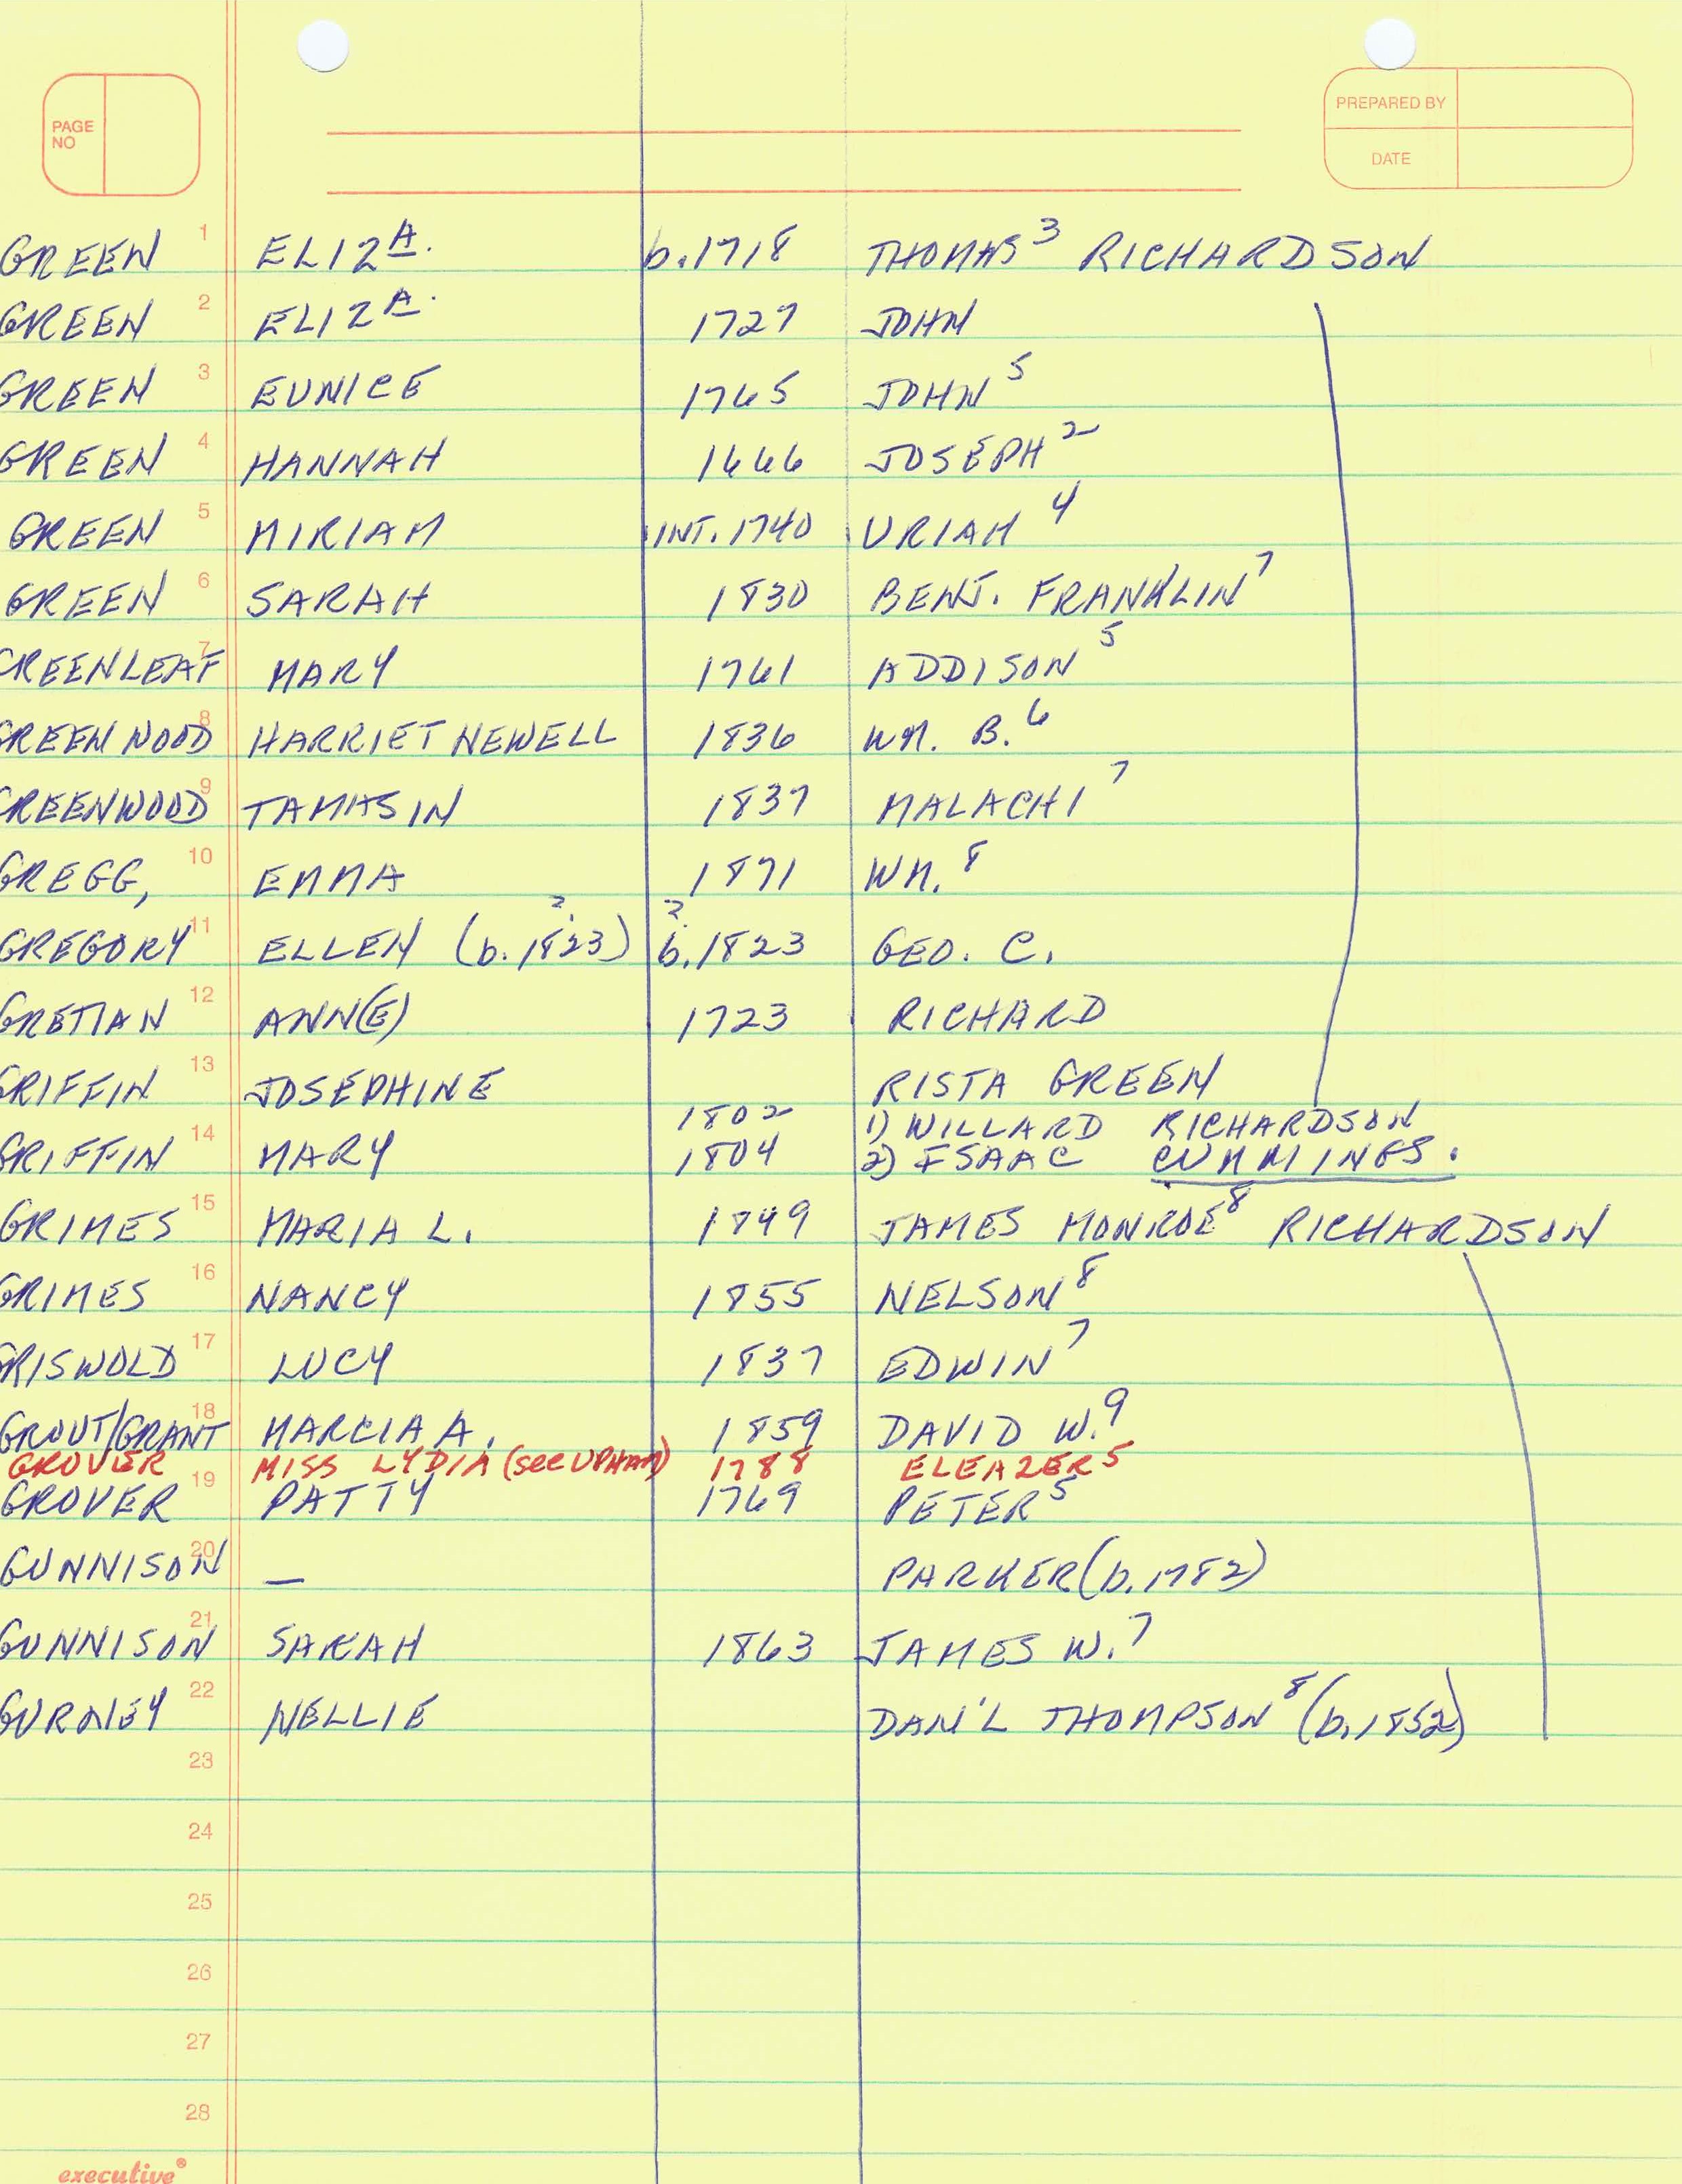 PAGE NO
PREPARED BY
DATE
GREEN 1 ELIZA. b. 1718 THOMAS3 RICHARDSON
GREEN 2 ELIZA. 1727 JOHN
GREEN 3 EUNICE 1765 JOHN5
GREEN 4 HANNAH 1666 JOSEPH2
GREEN 5 MIRIAM INT. 1740 URIAH4
GREEN 6 SARAH 1830 BENJ. FRANKLIN7
GREENLEAF 7 MARY 1761 ADDISON5
GREENWOOD 8 HARRIET NEWELL 1836 WM. B.6
GREENWOOD 9 TAMASIN 1837 MALACHI7
GREGG, 10 EMMA 1871 WM.8
GREGORY 11 ELLEN (b. 1823)? b. 1823? GEO. C.
GRETIAN 12 ANN(E) 1723 RICHARD
GRIFFIN 13 JOSEPHINE RISTA GREEN
1802 1) WILLARD RICHARDSON
GRIFFIN 14 MARY 1804 2) ISAAC CUMMINGS.
GRIMES 15 MARIA L. 1849 JAMES MONROE8 RICHARDSON
GRIMES 16 NANCY 1855 NELSON8
GRISWOLD 17 LUCY 1837 EDWIN7
GROUT/GRANT 18 MARCIA A. 1859 DAVID W.9
GROVER MISS LYDIA (see UPHAM) 1788 ELEAZER5
GROVER 19 PATTY 1769 PETER5
GUNNISON 20 — PARKER (b. 1782)
GUNNISON 21 SARAH 1863 JAMES W.7
GURNEY 22 NELLIE DAN'L THOMPSON8 (b. 1852)
23
24
25
26
27
28
executive®